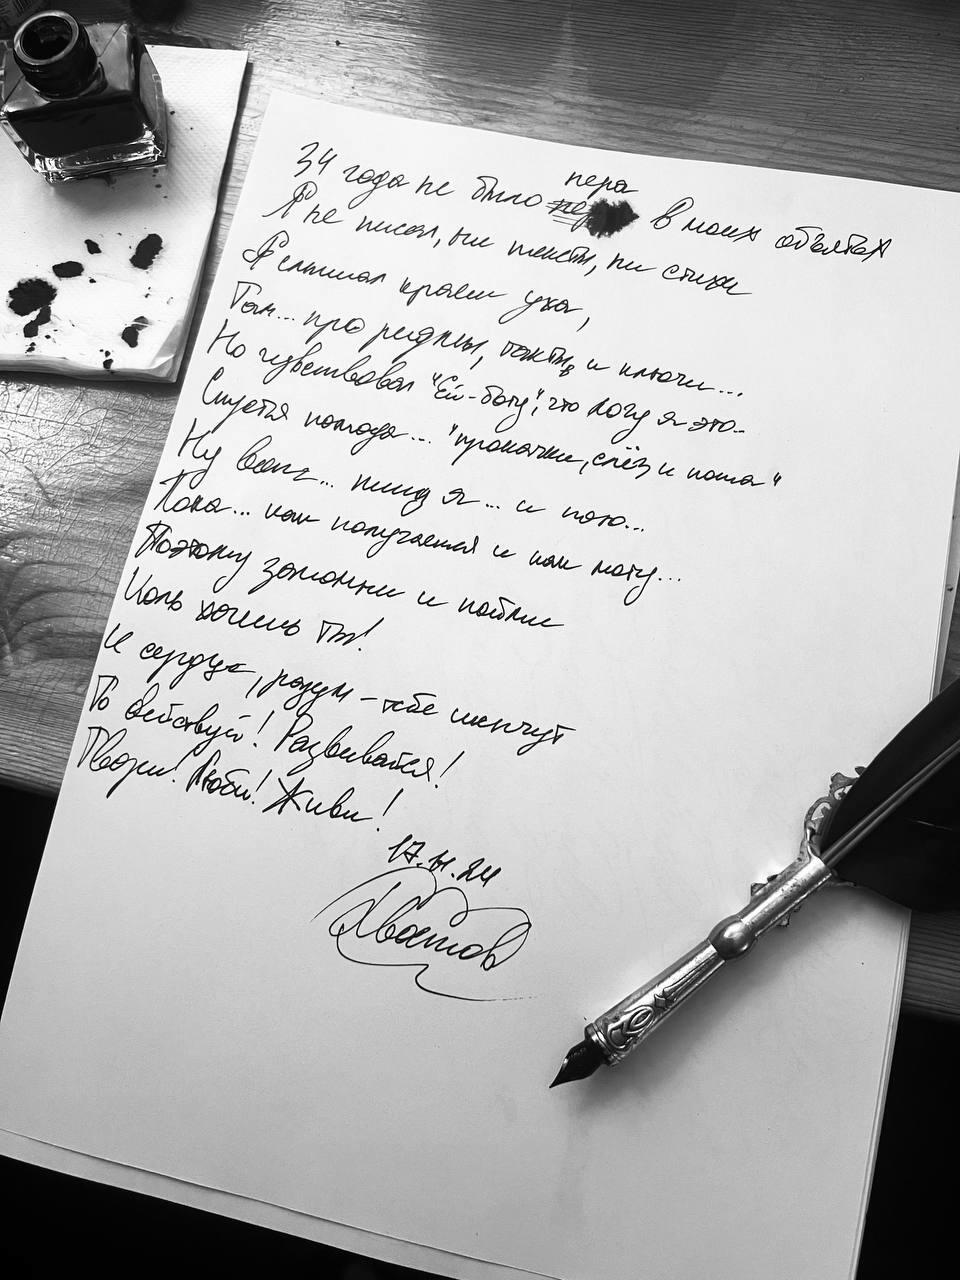 34 года не было пера в моих объятьях
Я не писал, ни тексты, ни стихи
Я слышал краем уха,
Там... про рифмы, такты и ключи...
Но чувствовал "Ей-богу", что могу я это..
Спустя полгода... "прокачки, слёз и пота"
Ну вот... пишу я... и пою...
Пока... как получается и как могу...
Поэтому запомни и пойми
Коль хочешь ты!
И сердце, разум - тебе шепчут
То действуй! Развивайся!
Твори! Люби! Живи!
17.11.24
Хватов